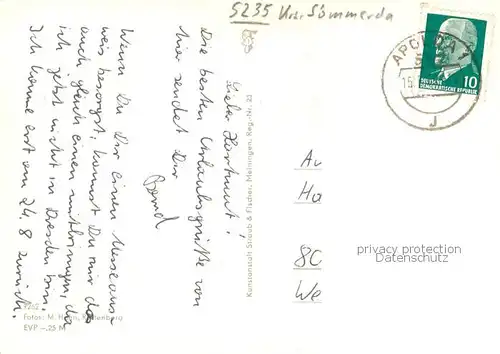 5235 Krs. Sömmerda
APOLDA
15.
J
DEUTSCHE
DEMOKRATISCHE REPUBLIK
10
Lieber Hartmut!
Die besten Urlaubsgrüße von
hier sendet Dir
Bernd
Wenn Du Dir einen Museaus-
weis besorgst, kannst Du mir da
auch gleich einen mitbringen, da
ich jetzt nicht in Dresden bin.
Ich komme erst am 24.8 zurück.
Kunstanstalt Straub & Fischer, Meiningen, Reg.-Nr. 23
Au
Ha
80
We
privacy protection
Datenschutz
Fotos: M.
EVP –,25 M